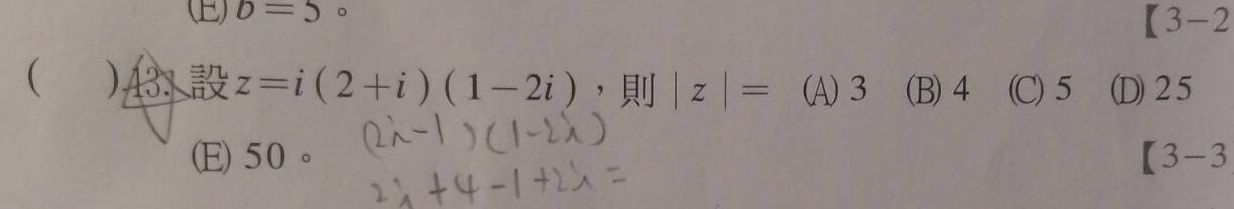 (E) b=5。
【3-2
( )43. 設 z=i(2+i)(1-2i),則 |z|= (A) 3 (B) 4 (C) 5 (D) 25
(2i-1)(1-2i)
(E) 50。
【3-3
2i+4-1+2i=